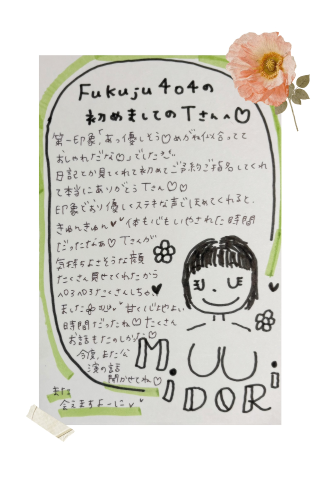 Fukuju404の
初めましてのTさんへ♡
第一印象「あっ優しそう♡めがね似合ってて
おしゃれだな♡」でした
日記とか見てくれて初めてご予約ご指名してくれ
て本当にありがとうTさん♡♡
印象どおり優しくてステキな声でほめてくれると、
きゅんきゅん♥体も心もいやされた時間
だったなぁ♡Tさんが
気持ちよさそうな顔
たくさん見せてくれたから
たくさんしちゃい
ました 甘く心地よい
時間だったね♡たくさん
お話もたのしかった♡
今度、また公
演の話
聞かせてね♡
また
会えますよーに♥
MiDORi